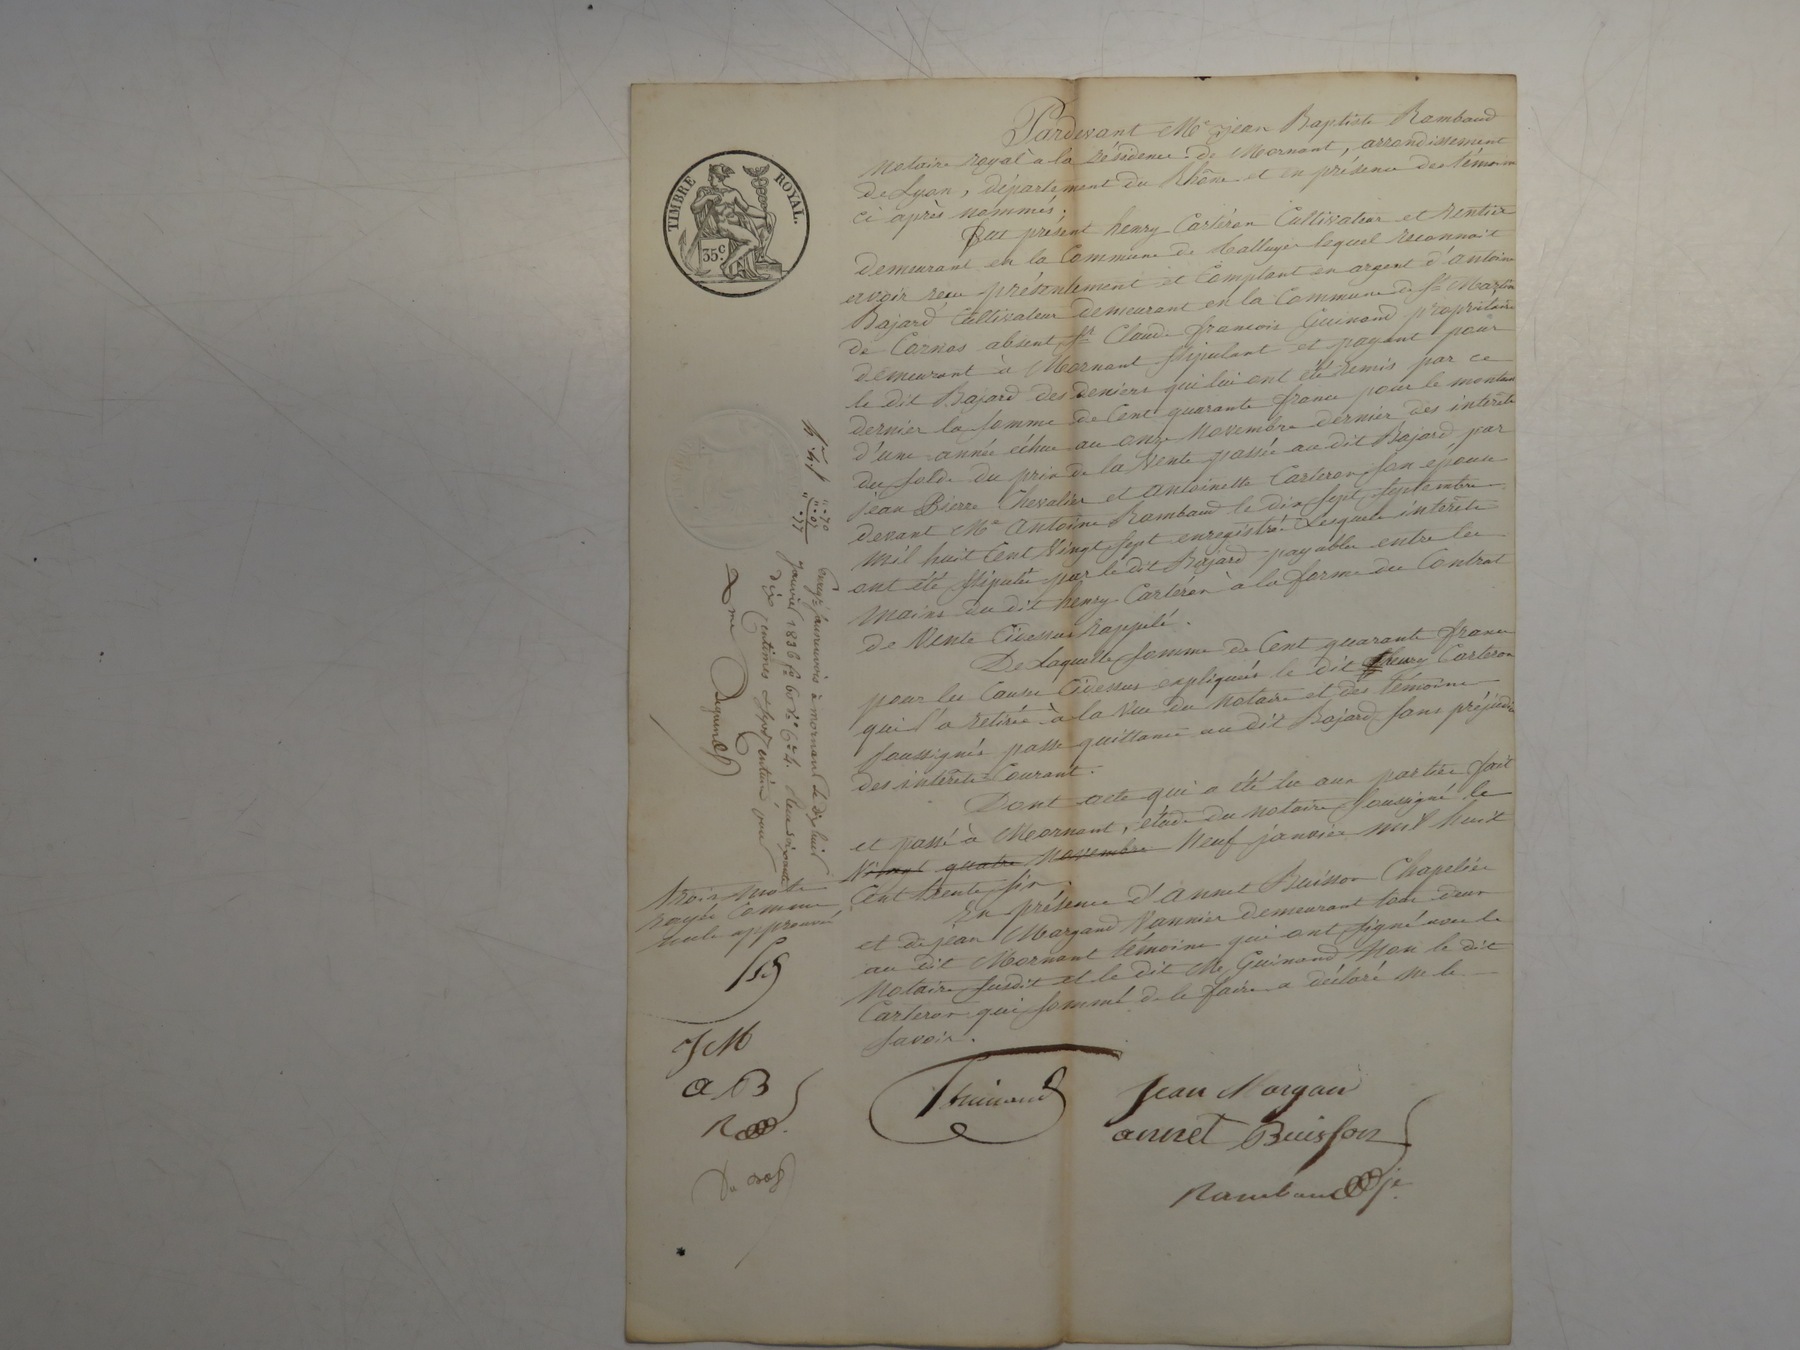 TIMBRE ROYAL.
35 c.
Pardevant Me jean Baptiste Rambaud
Notaire royal à la résidence de Mornant, arrondissement
de Lyon, département du Rhône et en présence des témoins
ci après nommés.
Fut présent henry Carteron Cultivateur et rentier
demeurant en la Commune de lequel reconnait
avoir reçu présentement et Comptant en argent d'antoine
Bajard Cultivateur demeurant en la Commune de St Martin
de Cornas absent, Sr Claude françois Guinand propriétaire
demeurant à Mornant Stipulant et payant pour
le dit Bajard des deniers qui lui ont été remis par ce
dernier la Somme de Cent quarante francs pour le montant
d'une année échue au onze Novembre dernier des intérêts
du Solde du prix de la Vente passée au dit Bajard par
jean Pierre Chevalier et antoinette Carteron son épouse
devant Me Antoine Rambaud le dix Sept Septembre
Mil huit Cent Vingt Sept enregistré. Lesquels intérêts
ont été Stipulés par le dit Bajard payables entre les
Mains du dit henry Carteron à la forme du Contrat
de Vente Cidessus rappelé.
De laquelle Somme de Cent quarante francs
pour les Causes Cidessus expliquées le dit henry Carteron
qui l'a retirée à la Vue du Notaire et des témoins
Soussignés passe quittance au dit Bajard Sans préjudice
des intérêts Courant.
Dont acte qui a été lu aux parties fait
et passé à Mornant, étude du Notaire Soussigné le
Vingt quatre Novembre Neuf janvier Mil huit
Cent trente Six.
En présence d'annet Buisson Chapelier
et de jean Morgand Vannier demeurant tous deux
au dit Mornant témoins qui ont Signé avec le
Notaire Susdit et le dit Me Guinand Non le dit
Carteron qui Sommé de le faire a déclaré ne le
Savoir.
Trois mots
rayés Comme
nuls approuvé
JM
a B
R
Guinand
Jean Morgan
annet Buisson
Rambaud je
à mornant le dix huit
janvier 1836 fo 60 Vo Cre 4. Reçu
dix centimes pour